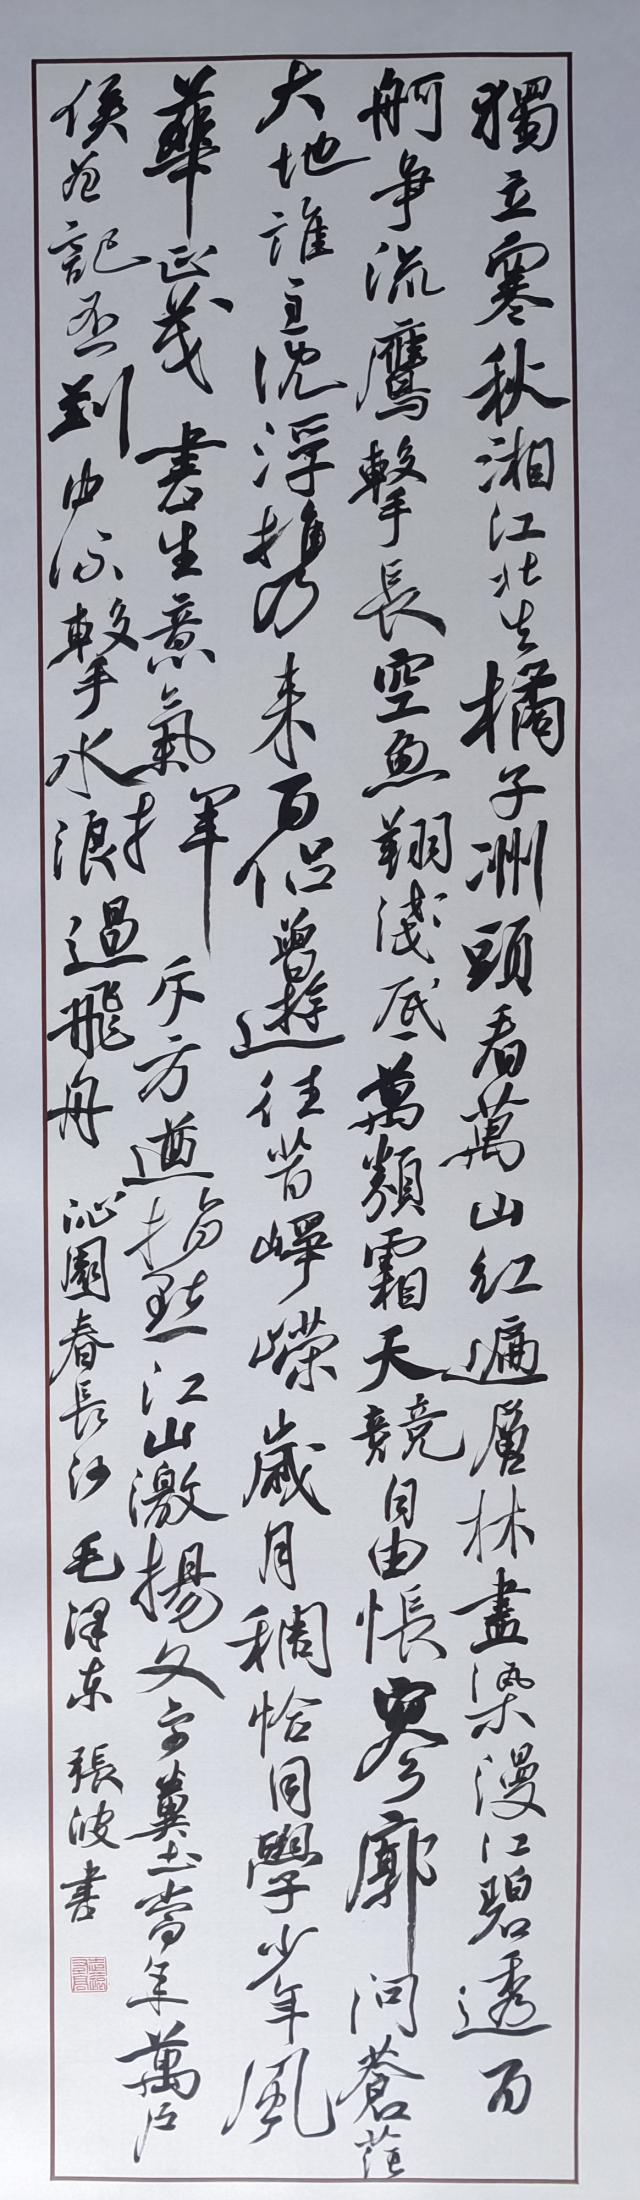 獨立寒秋湘江北去橘子洲頭看萬山紅遍層林盡染漫江碧透百
舸爭流鷹擊長空魚翔淺底萬類霜天競自由悵寥廓問蒼茫
大地誰主沈浮携来百侣曾遊往昔崢嶸歲月稠恰同學少年風
華正茂書生意氣揮斥方遒指點江山激揚文字糞土當年萬户
侯曾記否到中流擊水浪遏飛舟 沁園春長沙 毛澤东 張波書